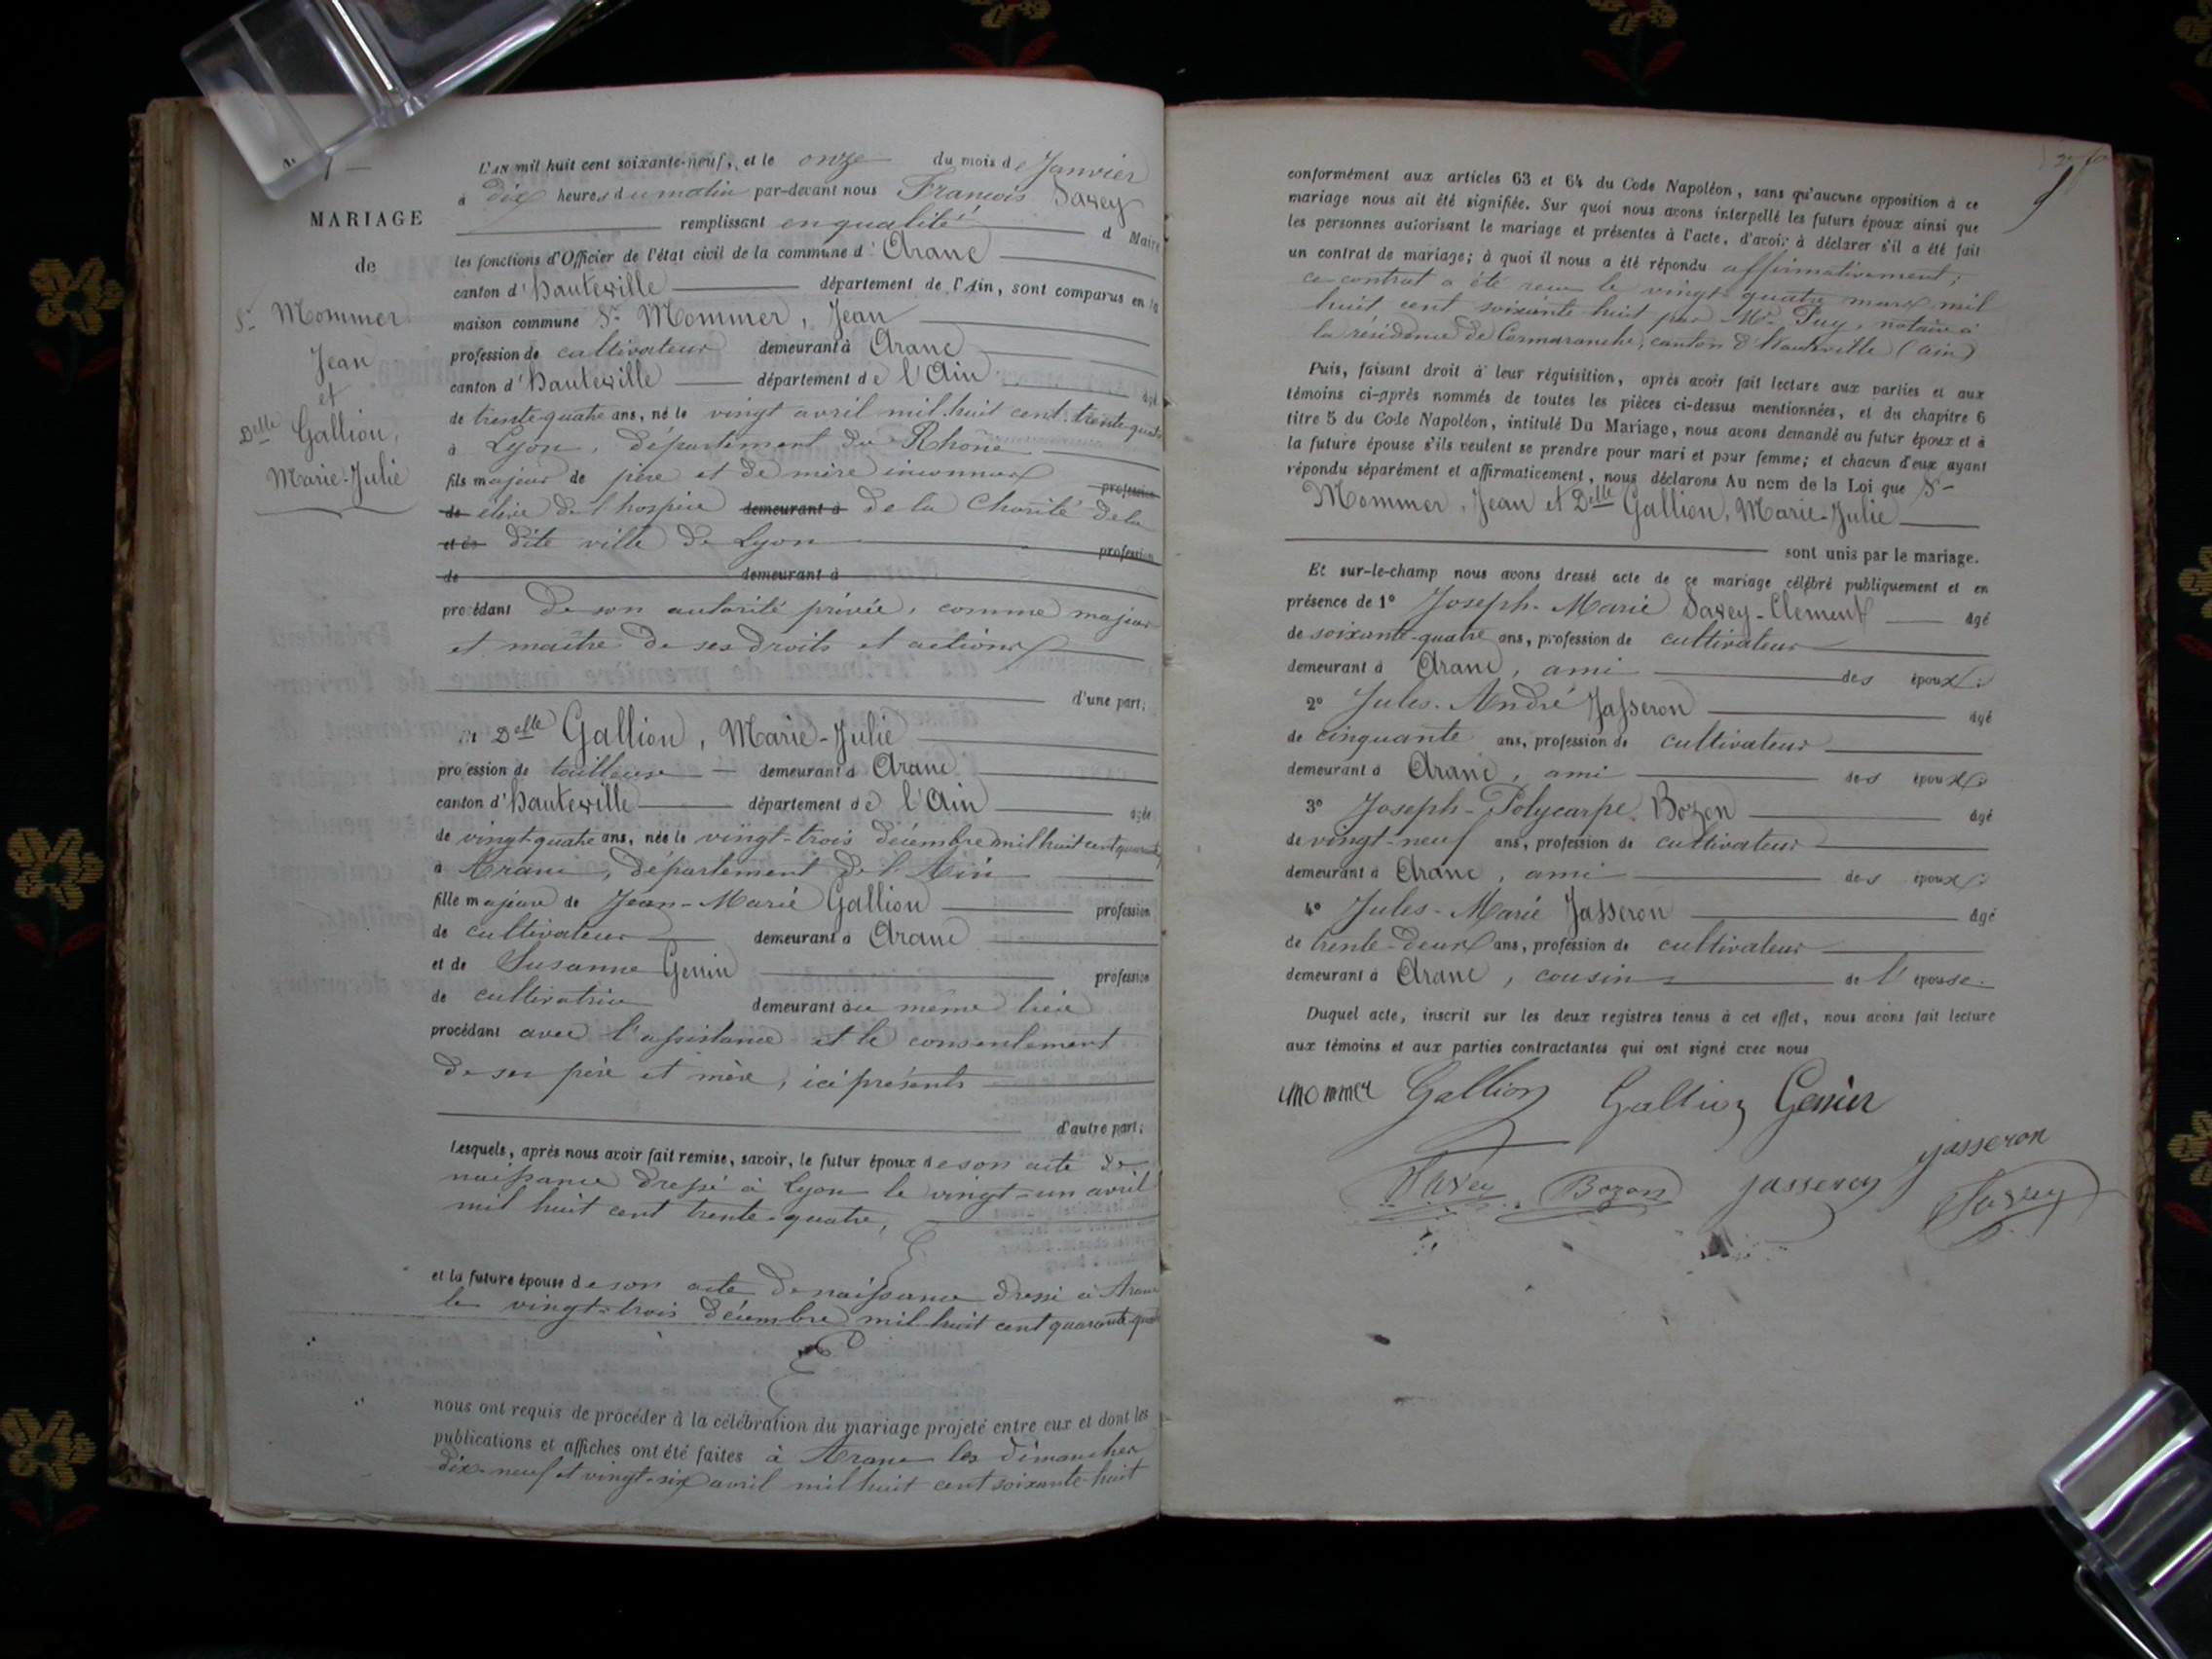 1
MARIAGE
de
Sr Mommer
Jean
et
Delle Gallion,
Marie-Julie
L'AN mil huit cent soixante-neuf, et le onze du mois de Janvier
à dix heures du matin par-devant nous François Savey
remplissant en qualité d Maire
les fonctions d'Officier de l'état civil de la commune d' Aranc
canton d' hauteville département de l'Ain, sont comparus en la
maison commune Sr Mommer, Jean
profession de cultivateur demeurant à Aranc
canton d' hauteville département de l'Ain agé
de trente-quatre ans, né le vingt avril mil huit cent trente quatre
à Lyon, département du Rhône
fils majeur de père et de mère inconnus profession
de élève de l'hospice demeurant à de la Charité de la
et de dite ville de Lyon profession
de demeurant à
procédant de son autorité privée, comme majeur
et maître de ses droits et actions
d'une part;
et Delle Gallion, Marie-Julie
profession de tailleuse demeurant à Aranc
canton d' hauteville département de l'Ain agée
de vingt-quatre ans, née le vingt-trois décembre mil huit cent quarante
à Aranc, département de l'Ain
fille majeure de Jean-Marie Gallion profession
de cultivateur demeurant à Aranc
et de Susanne Genin profession
de cultivatrice demeurant au même lieu
procédant avec l'assistance et le consentement
de ses père et mère, ici présents
d'autre part;
Lesquels, après nous avoir fait remise, savoir, le futur époux de son acte de
naissance dressé à Lyon le vingt-un avril
mil huit cent trente-quatre,
et la future épouse de son acte de naissance dressé à Aranc
le vingt-trois décembre mil huit cent quarante-quatre
nous ont requis de procéder à la célébration du mariage projeté entre eux et dont les
publications et affiches ont été faites à Aranc les dimanches
dix-neuf et vingt-six avril mil huit cent soixante-huit
conformément aux articles 63 et 64 du Code Napoléon, sans qu'aucune opposition à ce
mariage nous ait été signifiée. Sur quoi nous avons interpellé les futurs époux ainsi que
les personnes autorisant le mariage et présentes à l'acte, d'avoir à déclarer s'il a été fait
un contrat de mariage; à quoi il nous a été répondu affirmativement;
ce contrat a été reçu le vingt-quatre mars mil
huit cent soixante huit par Me Puy, notaire à
la résidence de Cormaranche, canton d'Hauteville (Ain)
Puis, faisant droit à leur réquisition, après avoir fait lecture aux parties et aux
témoins ci-après nommés de toutes les pièces ci-dessus mentionnées, et du chapitre 6
titre 5 du Code Napoléon, intitulé Du Mariage, nous avons demandé au futur époux et à
la future épouse s'ils veulent se prendre pour mari et pour femme; et chacun d'eux ayant
répondu séparément et affirmativement, nous déclarons Au nom de la Loi que Sr
Mommer, Jean et Delle Gallion, Marie-Julie
sont unis par le mariage.
Et sur-le-champ nous avons dressé acte de ce mariage célébré publiquement et en
présence de 1° Joseph-Marie Savey-Clement agé
de soixante-quatre ans, profession de cultivateur
demeurant à Aranc, ami des époux.
2° Jules-André Jasseron agé
de cinquante ans, profession de cultivateur
demeurant à Aranc, ami des époux.
3° Joseph-Polycarpe Bozon agé
de vingt-neuf ans, profession de cultivateur
demeurant à Aranc, ami des époux.
4° Jules-Marie Jasseron agé
de trente-deux ans, profession de cultivateur
demeurant à Aranc, cousin de l'épouse.
Duquel acte, inscrit sur les deux registres tenus à cet effet, nous avons fait lecture
aux témoins et aux parties contractantes qui ont signé avec nous
mommer Gallion Gallion Genin
jasseron
Savey Bozon jasseron Savey